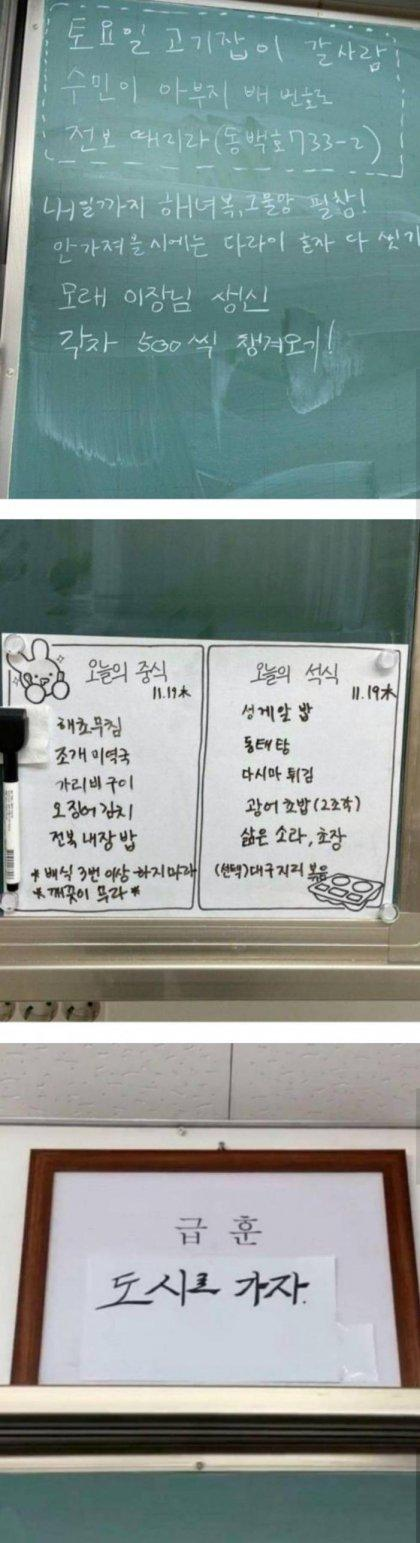 토요일 고기잡이 갈사람
수민이 아부지 배 번호로
전보 때리라 (동백호733-2)
내일까지 해녀복, 그물망 필참!
안가져올시에는 다라이 혼자 다 씻기
모래 이장님 생신
각자 500씩 챙겨오기!
오늘의 중식
11.19木
해초무침
조개미역국
가리비구이
오징어김치
전복내장밥
*배식 3번 이상 하지마라
*깨끗이 무라*
오늘의 석식
11.19木
성게알밥
동태탕
다시마튀김
광어초밥(2조각)
삶은소라, 초장
(선택)대구지리볶음
급훈
도시로 가자.